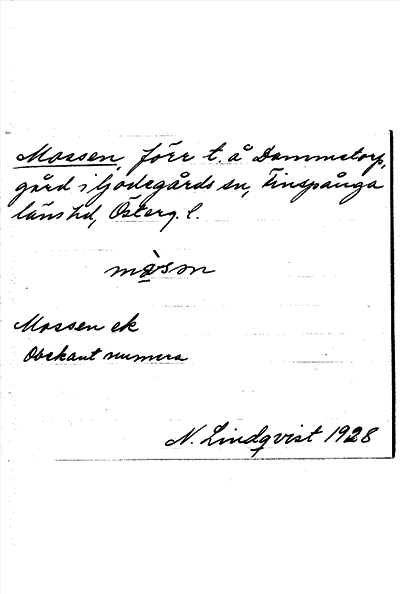 Mossen, förr t. å Dammstorp,
gård i Godegårds sn, Finspånga
läns hd, Österg. l.
mòsm
Mossen ek
Obekant numera
N. Lindqvist 1928